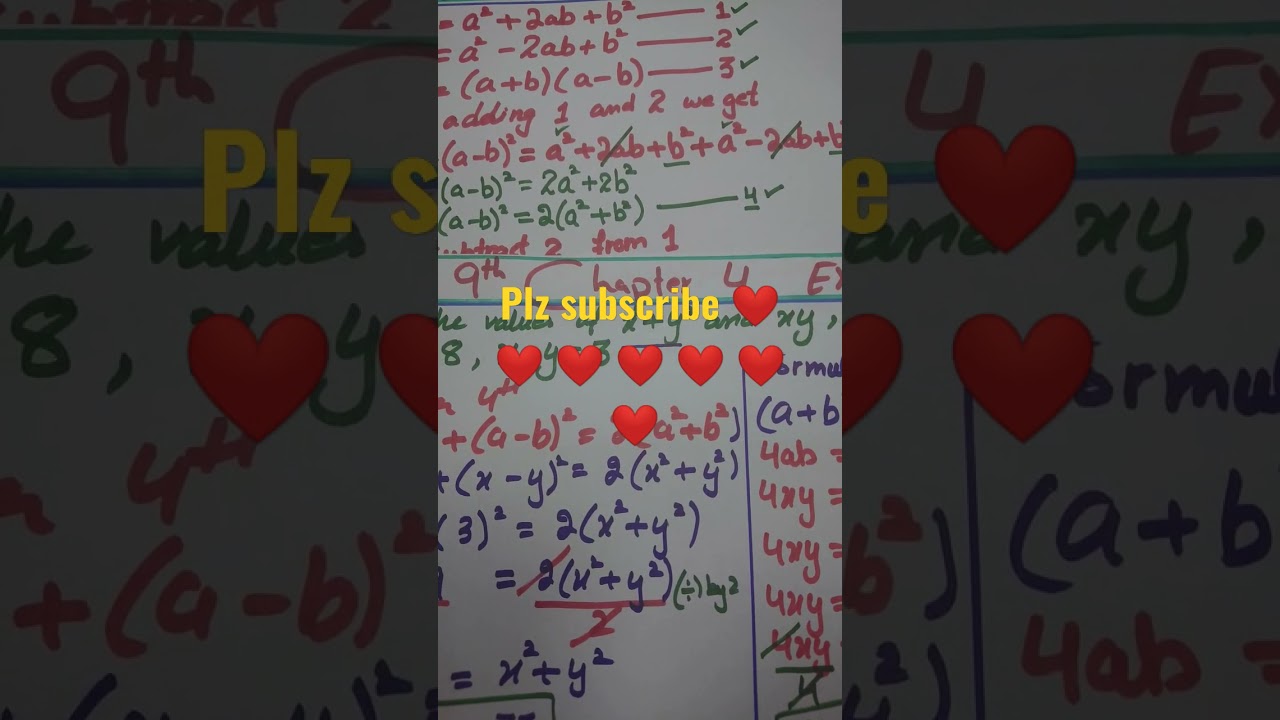 = a² + 2ab + b² —— 1 ✓
= a² - 2ab + b² —— 2 ✓
= (a+b)(a-b) —— 3 ✓
adding 1 and 2 we get
(a-b)² = a² + 2ab + b² + a² - 2ab + b
(a-b)² = 2a² + 2b²
(a-b)² = 2(a² + b²) —— 4 ✓
subtract 2 from 1
9th Chapter 4 Ex
Plz subscribe ❤️
he values of x+y and xy,
8, y 3
❤️ ❤️ ❤️ ❤️ ❤️
❤️
4th
+ (a-b)² = 2(a² + b²)
+ (x-y)² = 2(x² + y²)
(3)² = 2(x² + y²)
= 2(x² + y²) (÷) by 2
2
= x² + y²
Formul
(a+b
4ab =
4xy =
4xy =
4xy =
4xy
4